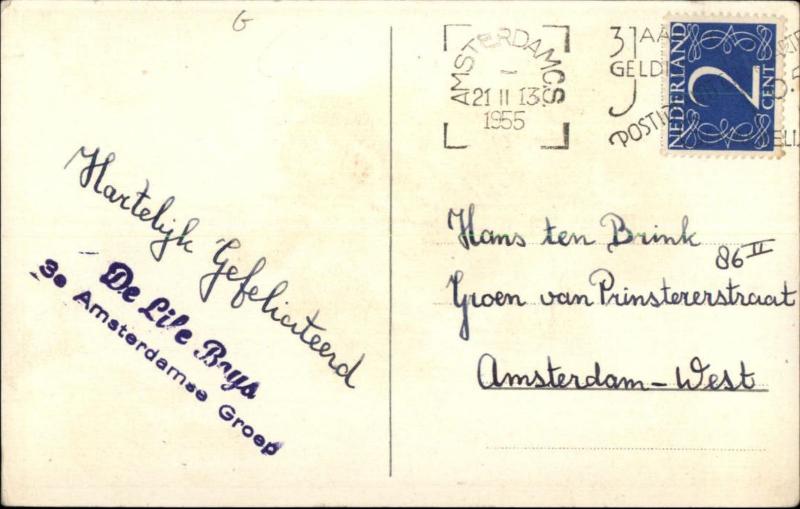 G
AMSTERDAM CS
21 II 13
1955
GELD
NEDERLAND
2
CENT
Hartelijk Gefeliciteerd
De Lile Brys
3e Amsterdamse Groep
Hans ten Brink
86 II
Groen van Prinstererstraat
Amsterdam-West